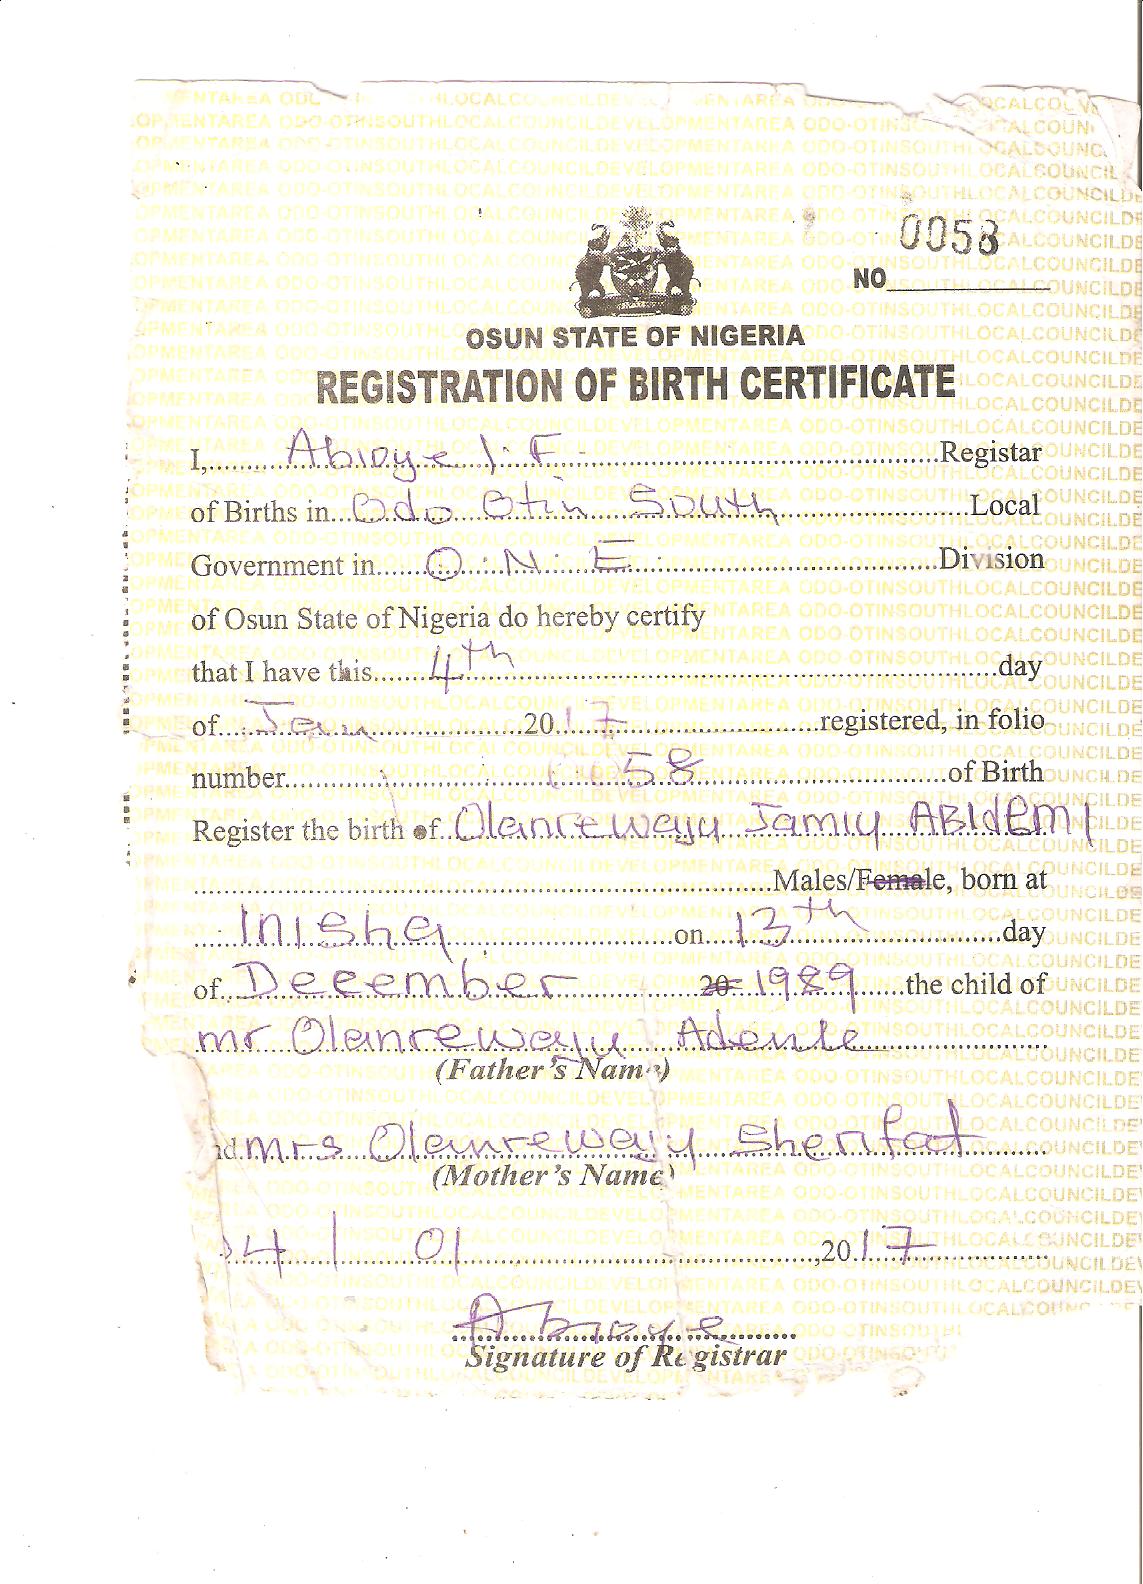 0058
NO
OSUN STATE OF NIGERIA
REGISTRATION OF BIRTH CERTIFICATE
I, Abioye I. F Registar
of Births in Odo Otin South Local
Government in O. N. E. Division
of Osun State of Nigeria do hereby certify
that I have this 4th day
of Jan 2017 registered, in folio
number 58 of Birth
Register the birth of Olanrewaju Jamiy ABIDEMI
Males/Female, born at
Inisha on 13th day
of December 20 1989 the child of
mr Olanrewaju Adenle
(Father's Name)
mrs Olanrewaju Sherifat
(Mother's Name)
4 / 01 ,2017
Abioye
Signature of Registrar